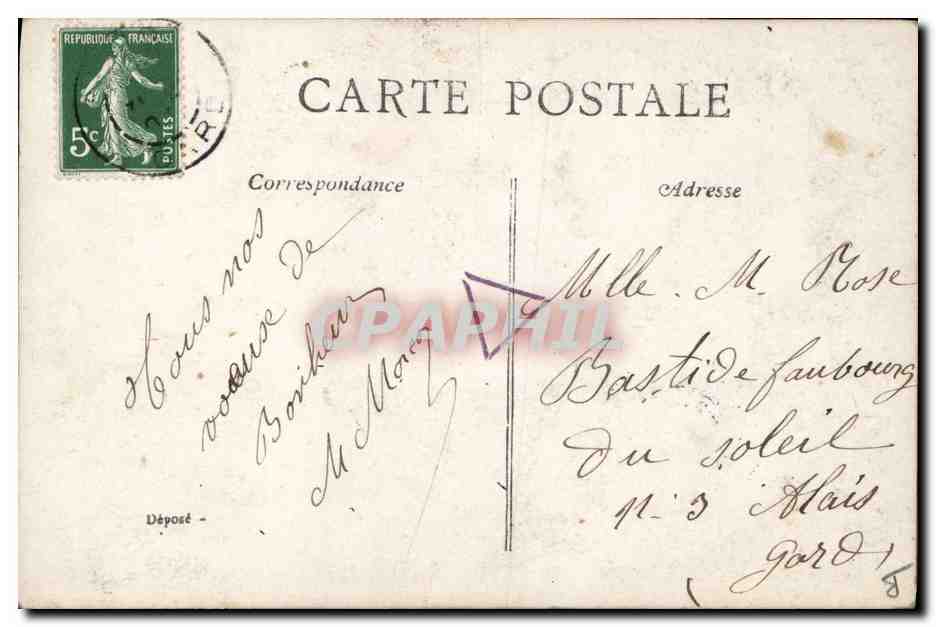 REPUBLIQUE FRANÇAISE
5c
POSTES
CARTE POSTALE
Correspondance
Adresse
Tous nos
voeuxse de
Bonheur
M
Mlle. M. Rose
Bastide faubourg
du soleil
n. 3 Alais
(Gard)
Déposé -
CPAPHIL